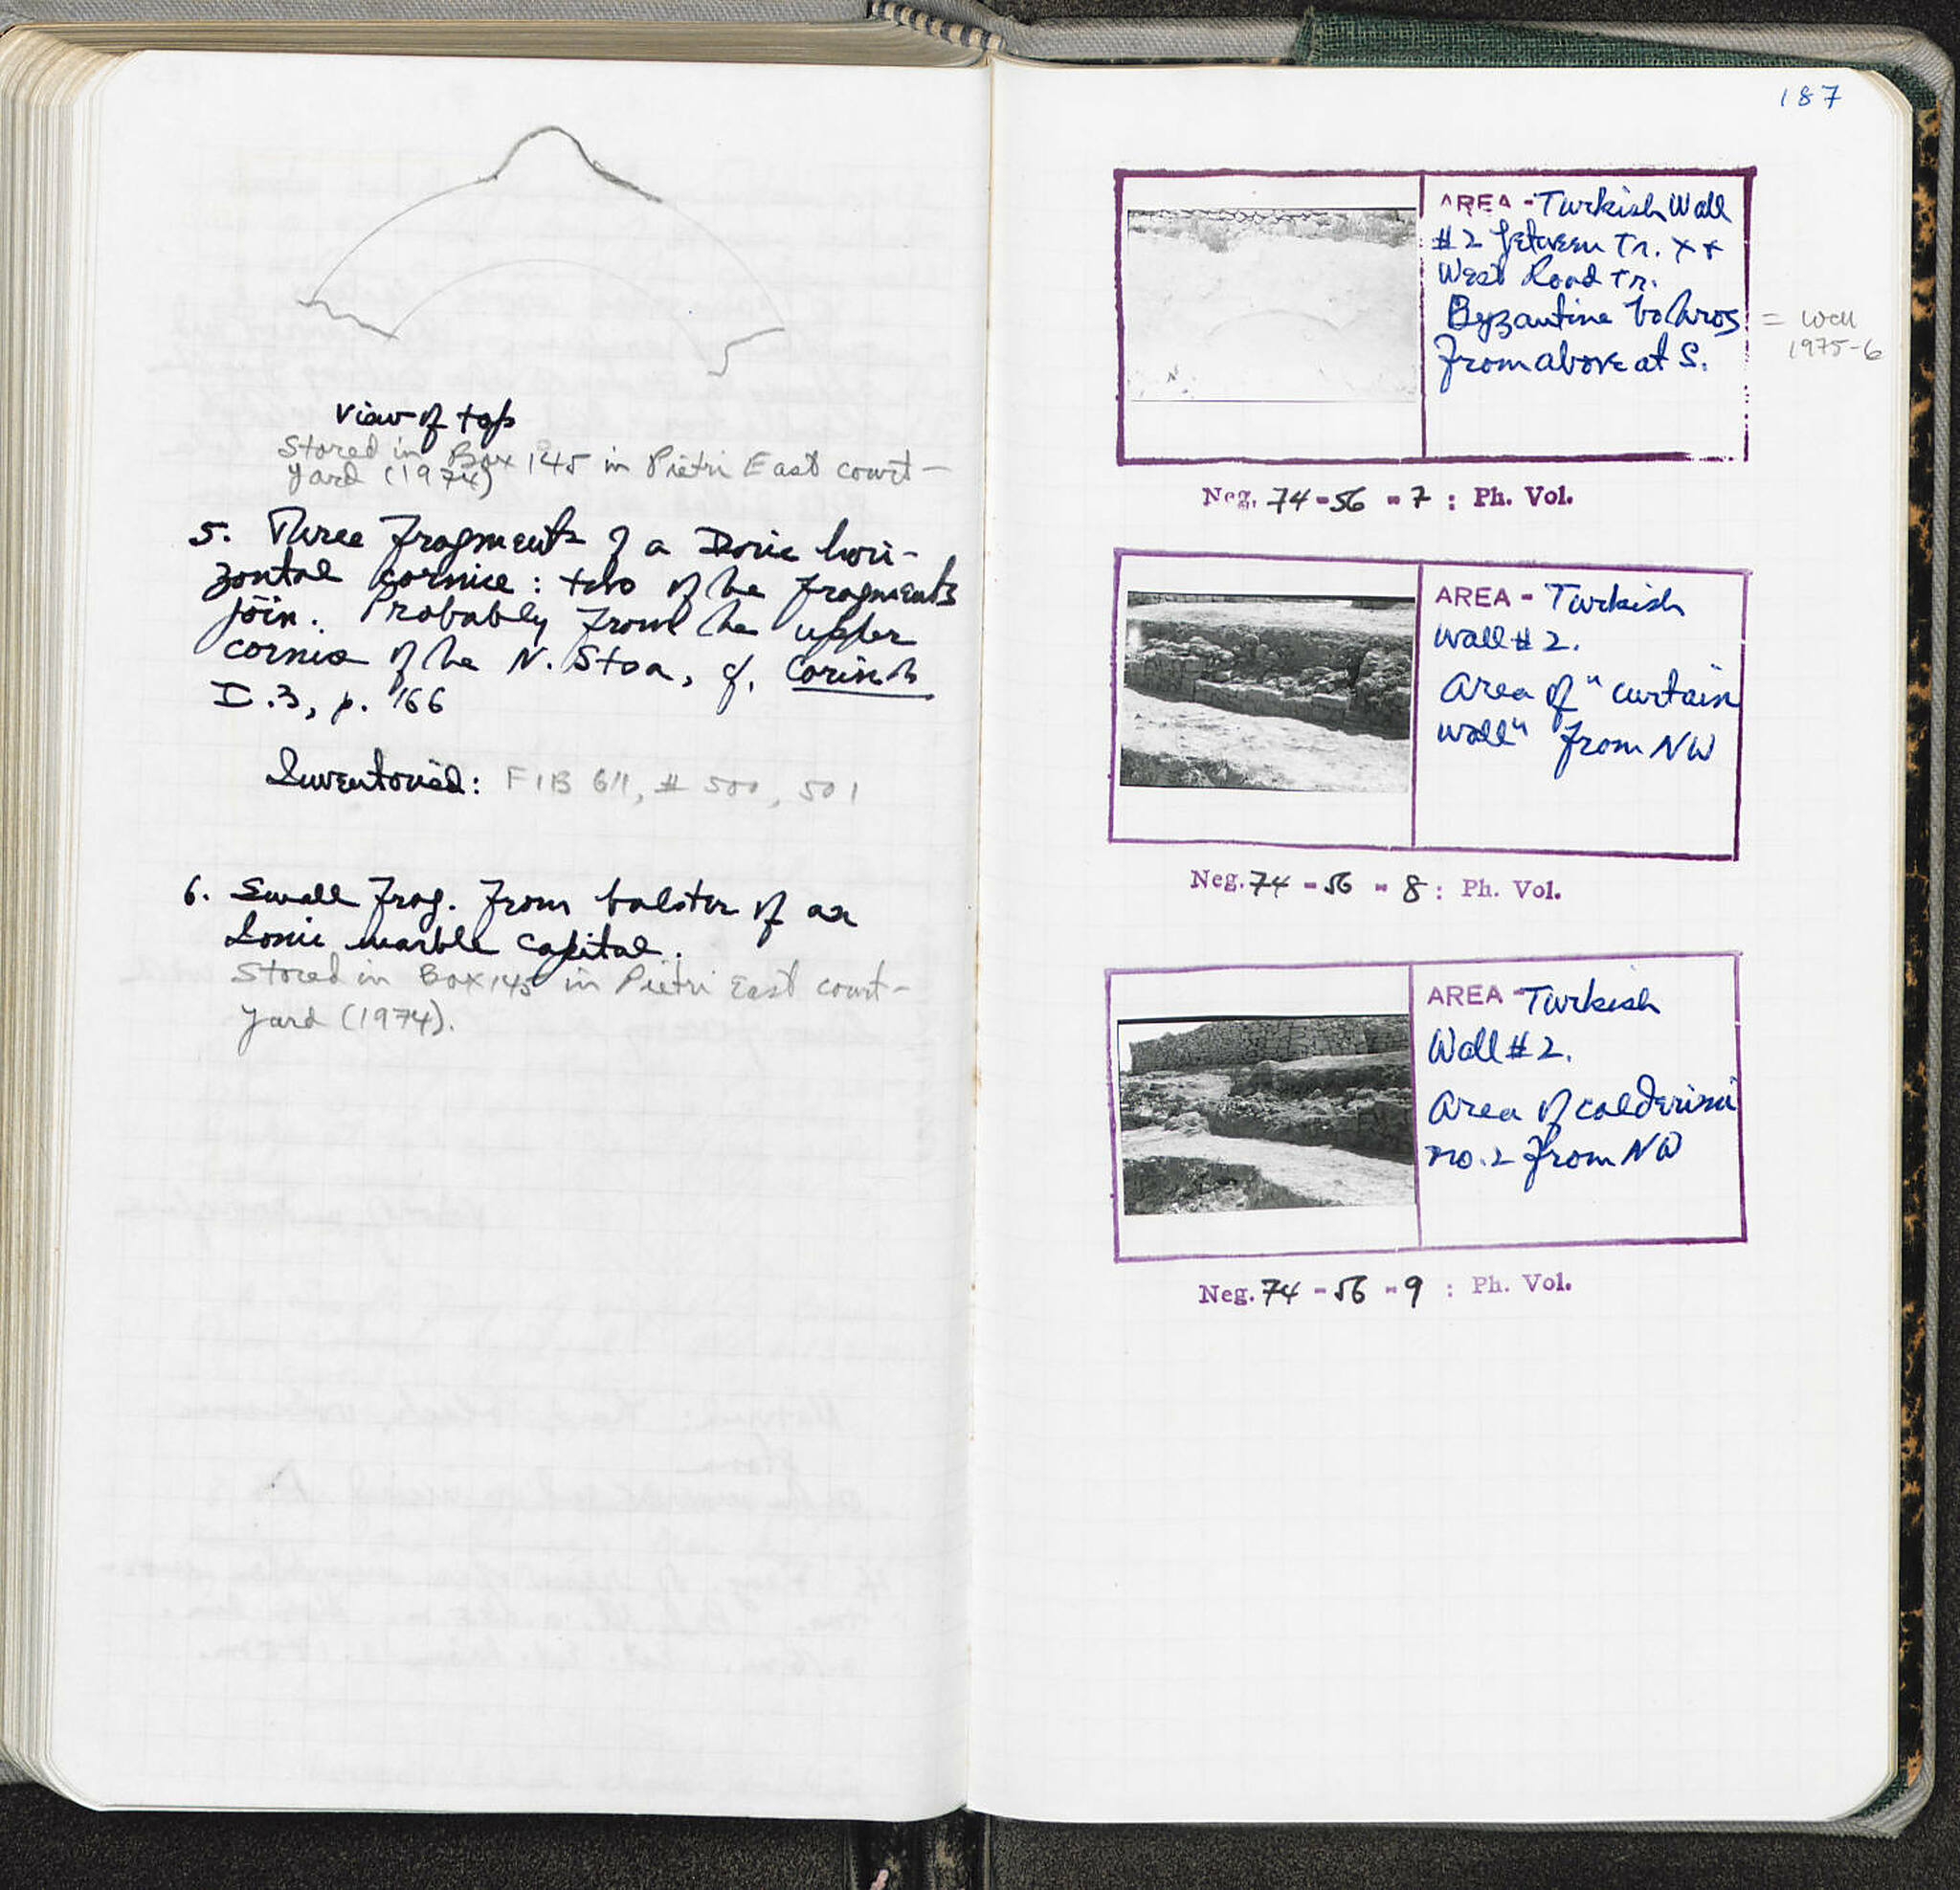 View of top
Stored in Box 145 in Pietri East court-
yard (1974)
5. Three fragments of a Doric hori-
zontal cornice: two of the fragments
join. Probably from the upper
cornice of the N. Stoa, cf. Corinth
I.3, p. 166
Inventoried: FIB 611, # 500, 501
6. Small frag. from bolster of an
Ionic marble capital.
Stored in Box 145 in Pietri East court-
yard (1974).
187
AREA - Turkish Wall
#2 between Tr. X +
West Road Tr.
Byzantine bothros
from above at S.
= well
1975-6
Neg. 74-56-7 : Ph. Vol.
AREA - Turkish
Wall #2.
Area of "curtain
wall" from NW
Neg. 74-56-8 : Ph. Vol.
AREA - Turkish
Wall #2.
Area of calderimi
no. 2 from NW
Neg. 74-56-9 : Ph. Vol.